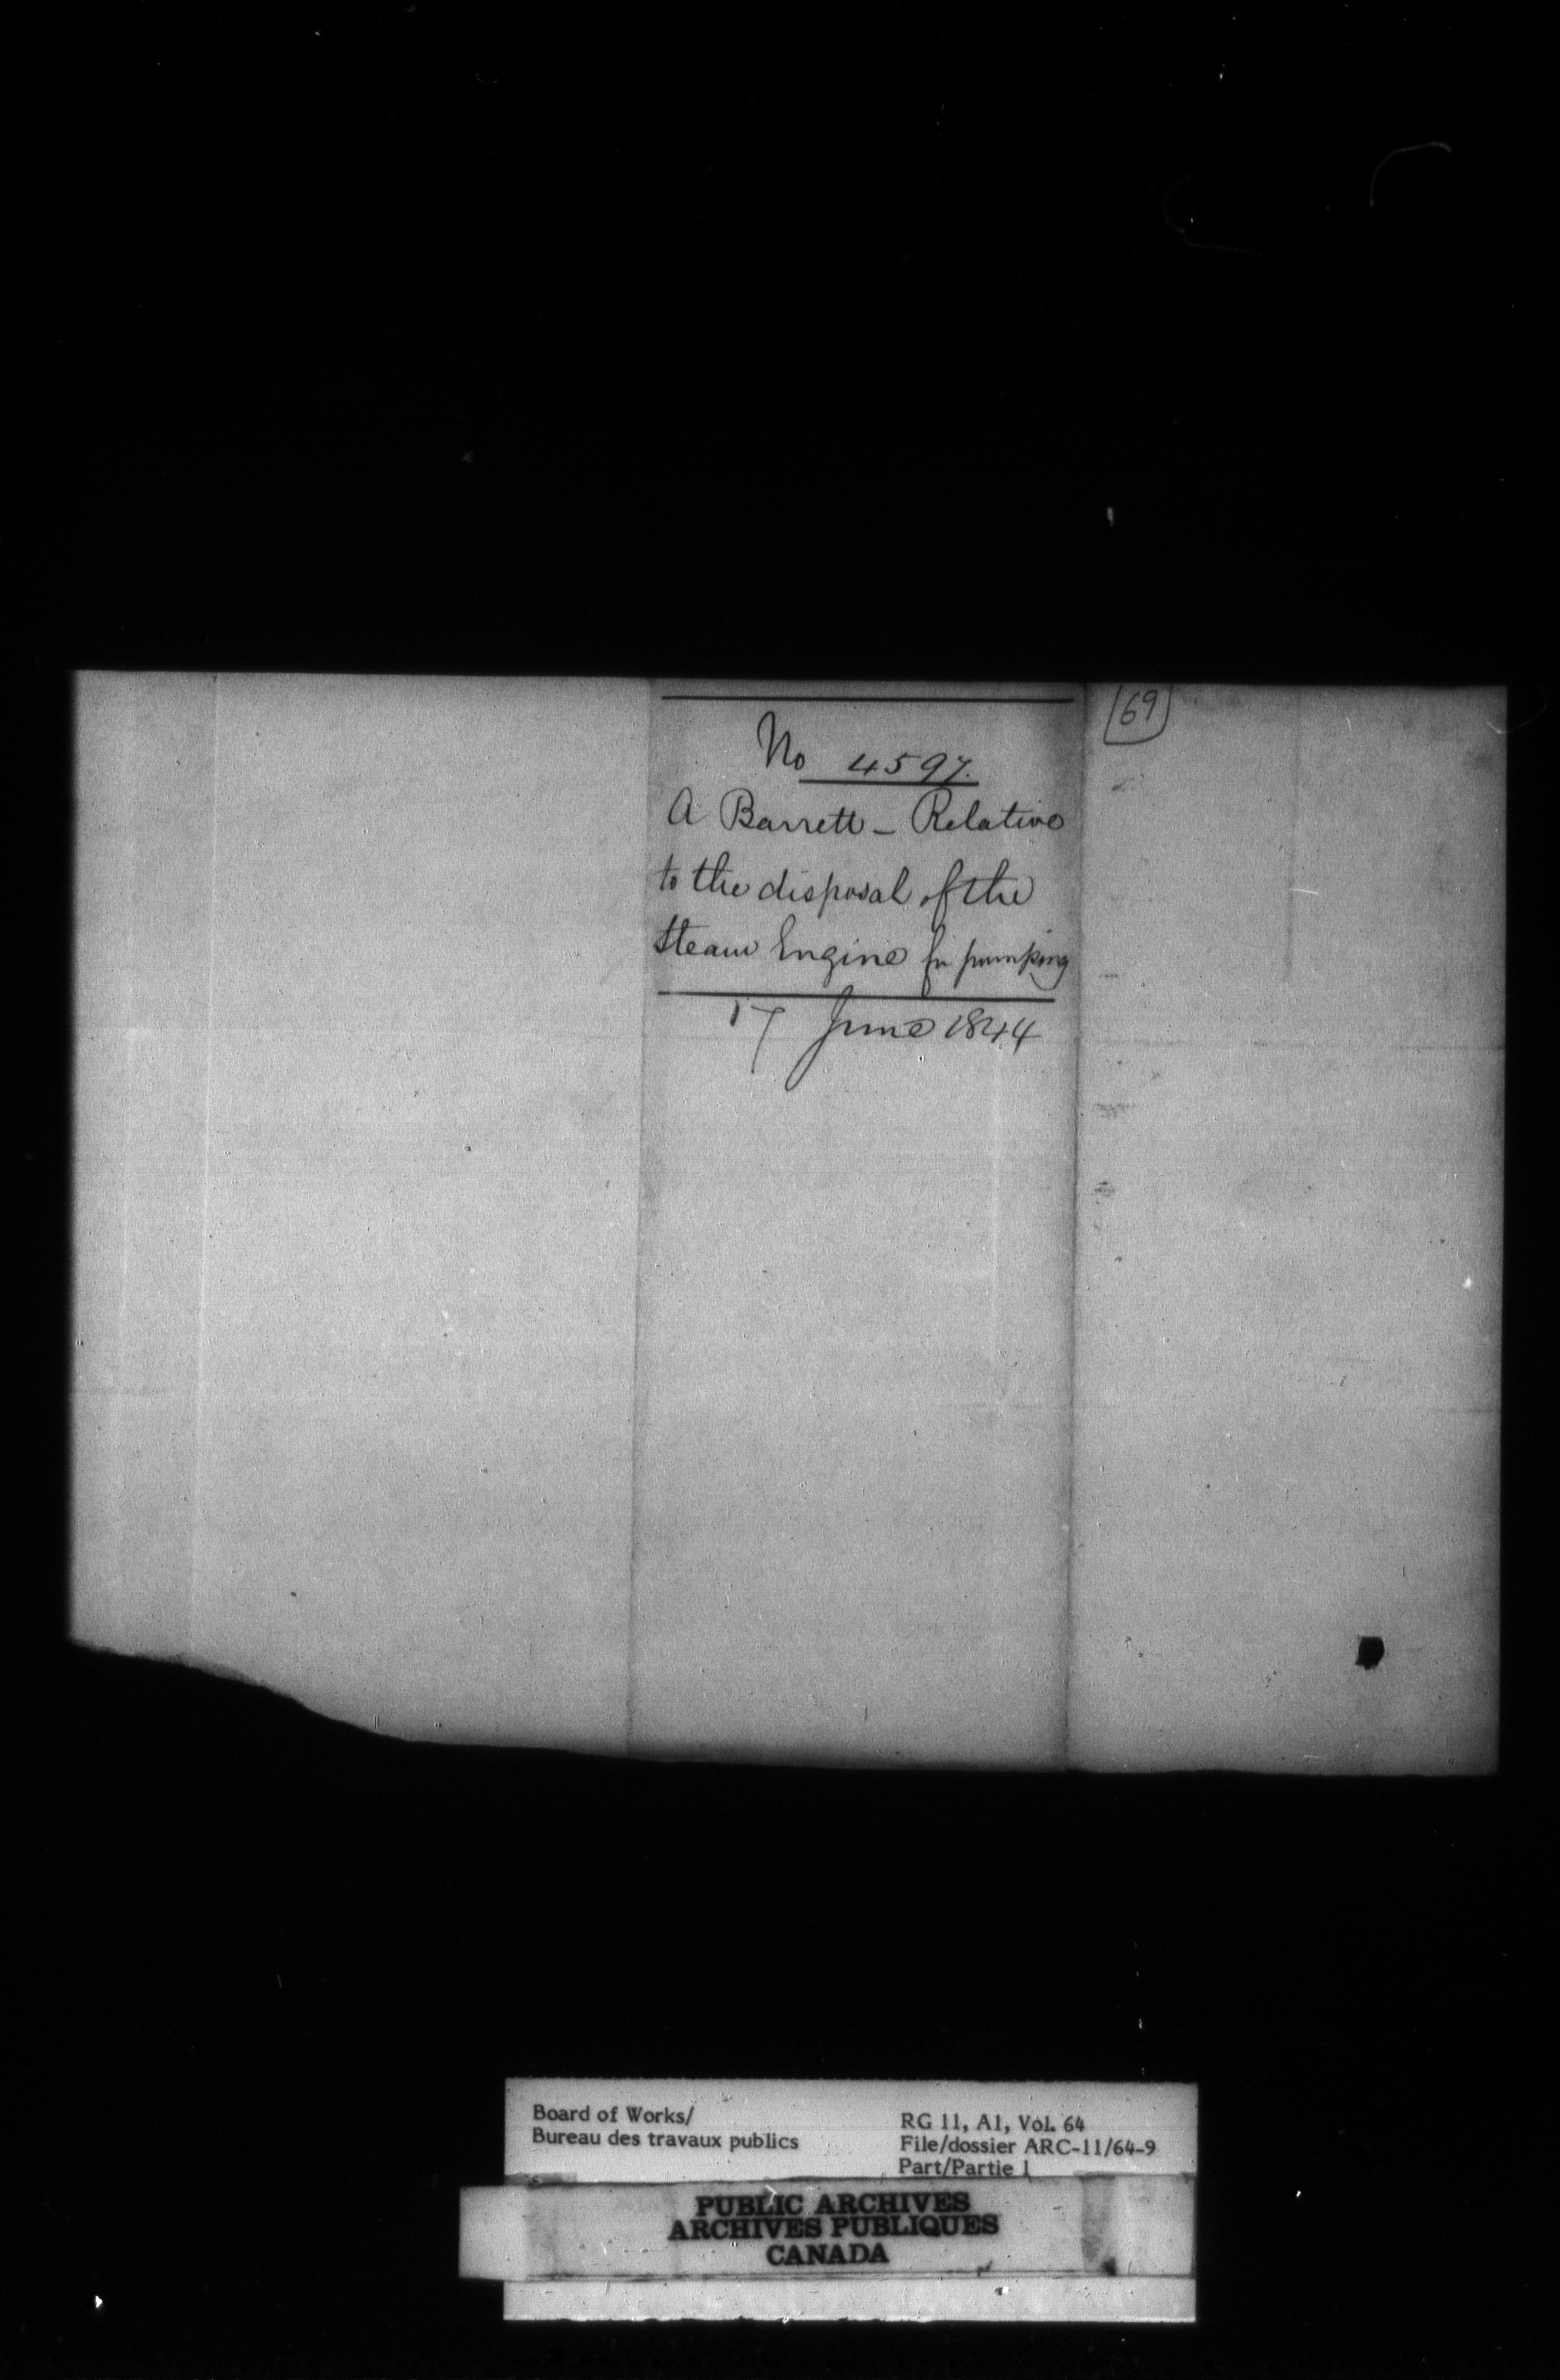 69
No 4597.
A Barrett - Relative
to the disposal of the
Steam Engine for pumping
17 June 1844
Board of Works/
Bureau des travaux publics
RG 11, A1, Vol. 64
File/dossier ARC-11/64-9
Part/Partie 1
PUBLIC ARCHIVES
ARCHIVES PUBLIQUES
CANADA